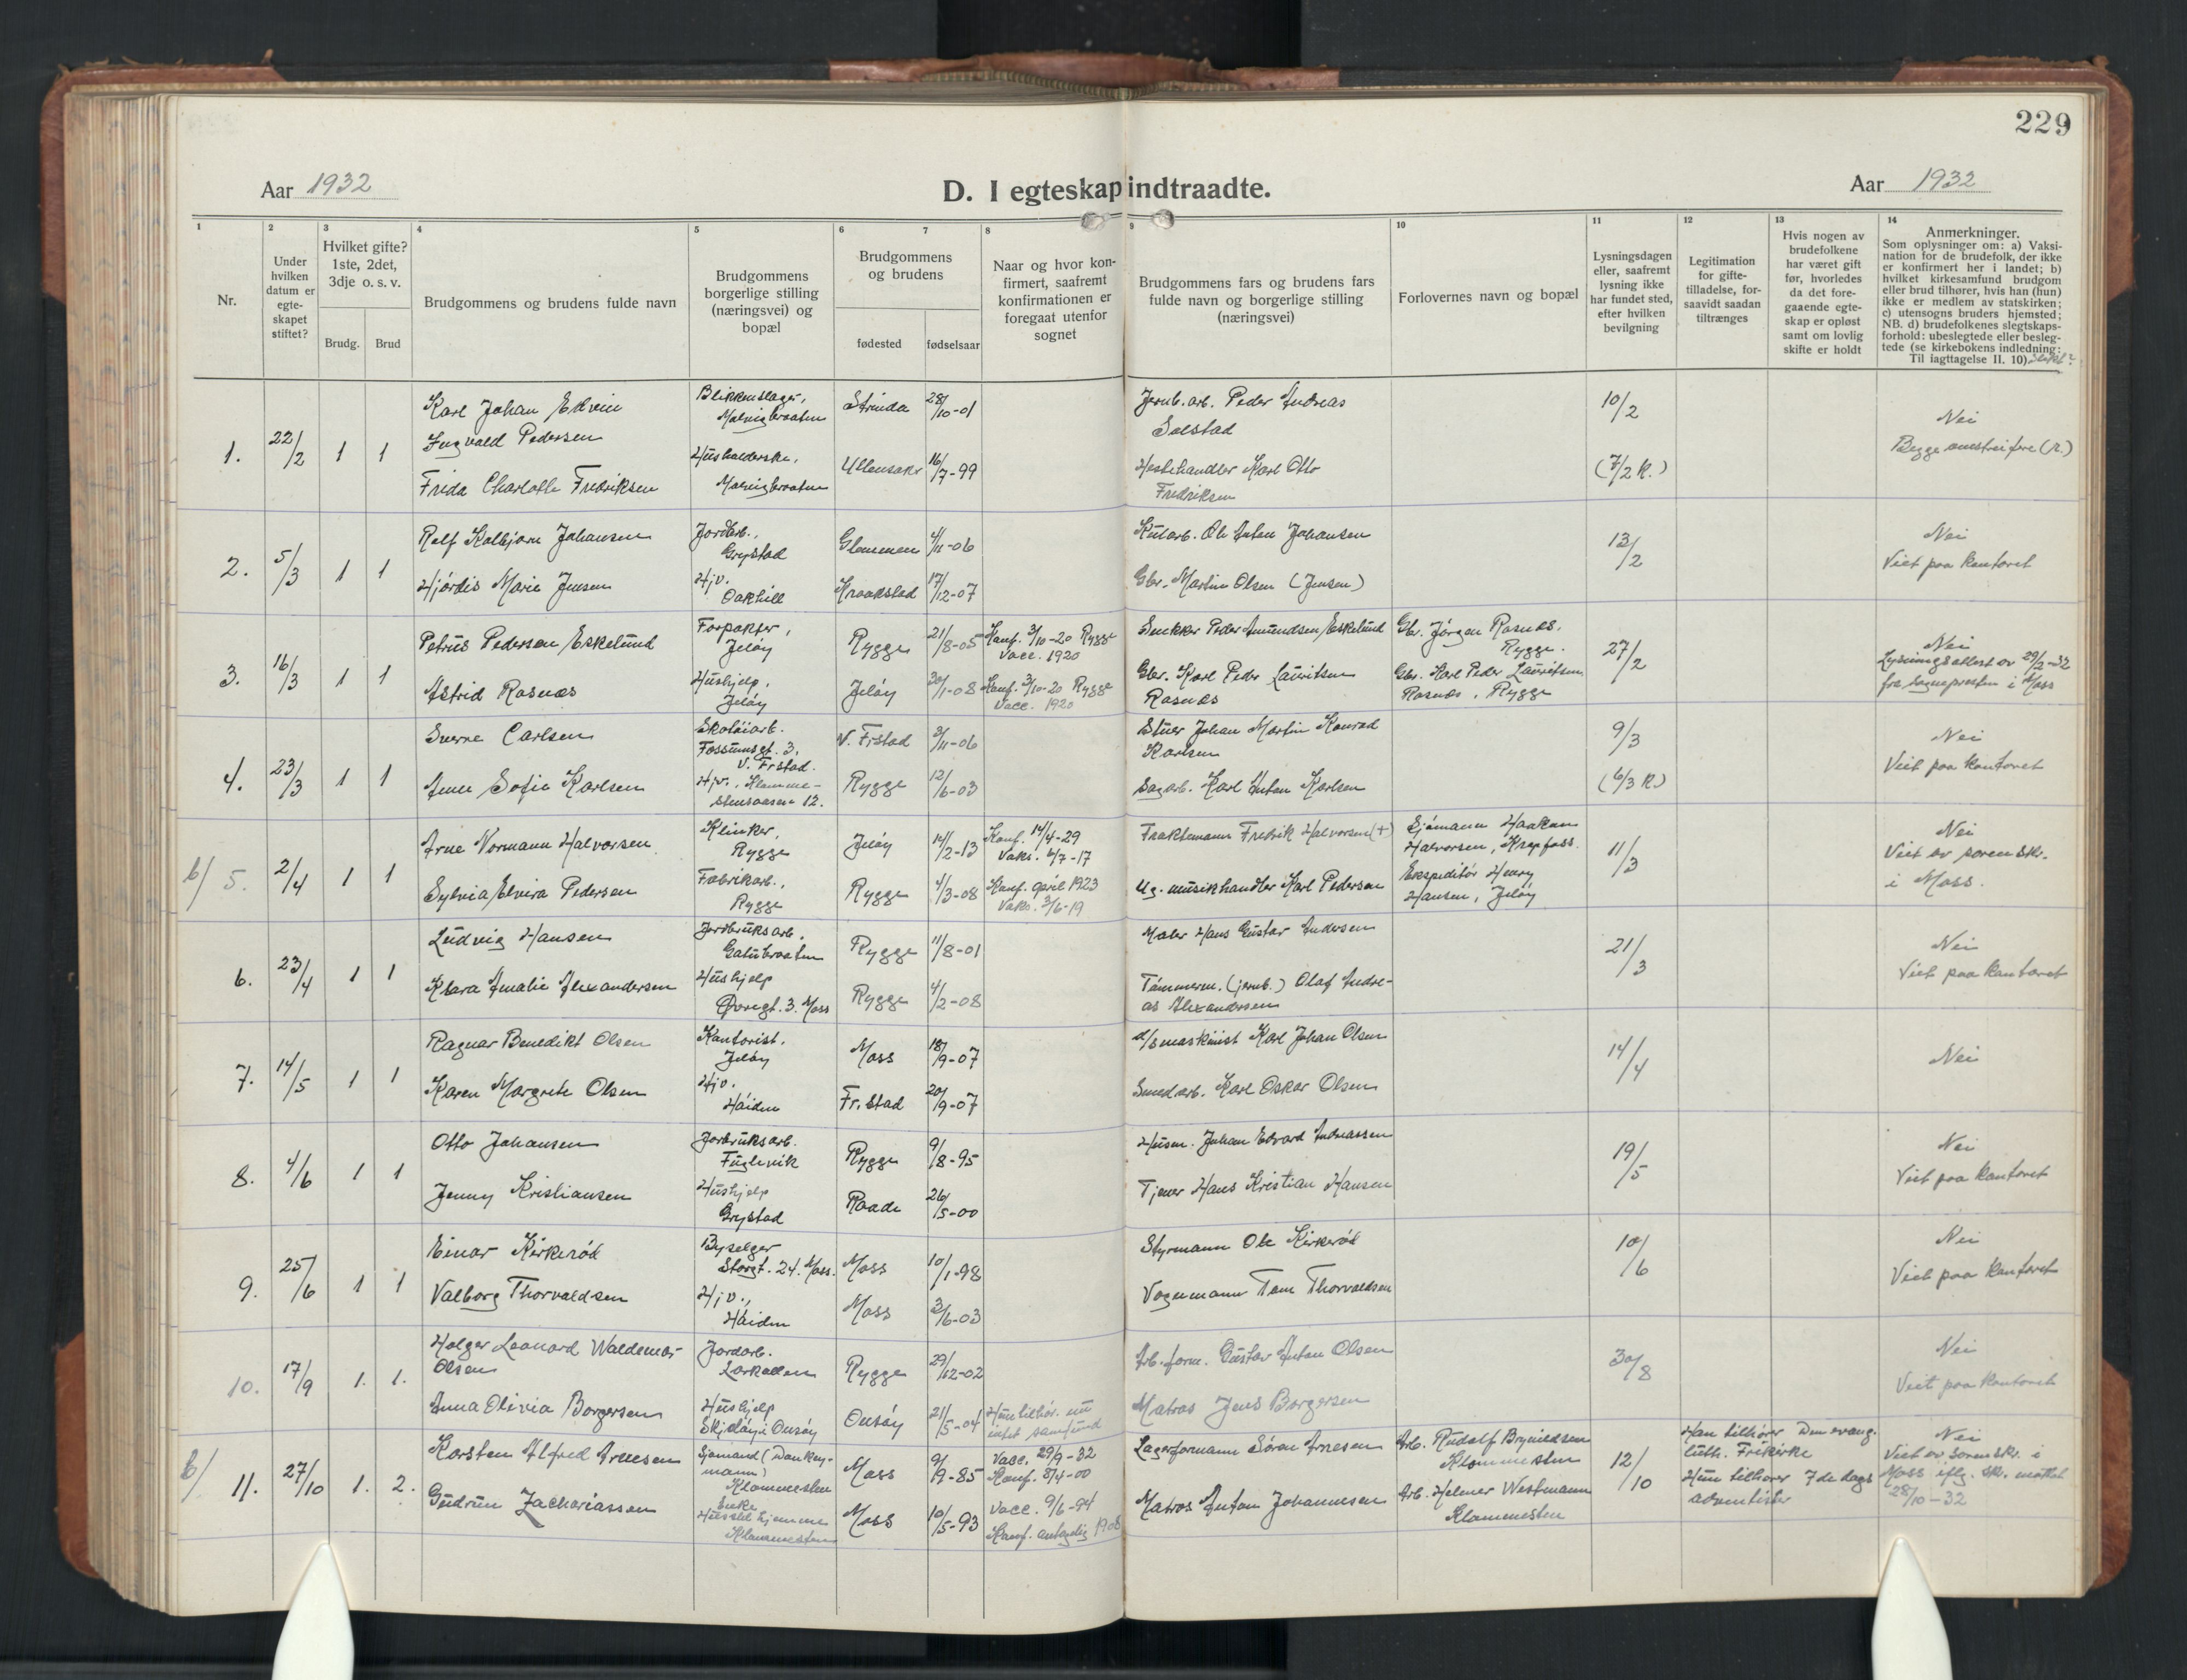 229
Aar 1932
D. I egteskap indtraadte.
Aar 1932
1
Nr.
2
Under
hvilken
datum er
egte-
skapet
stiftet?
3
Hvilket gifte?
1ste, 2det,
3dje o. s. v.
Brudg.
Brud
4
Brudgommens og brudens fulde navn
5
Brudgommens
borgerlige stilling
(næringsvei) og
bopæl
6
7
Brudgommens
og brudens
fødested
fødselsaar
8
Naar og hvor kon-
firmert, saafremt
konfirmationen er
foregaat utenfor
sognet
9
Brudgommens fars og brudens fars
fulde navn og borgerlige stilling
(næringsvei)
10
Forlovernes navn og bopæl
11
Lysningsdagen
eller, saafremt
lysning ikke
har fundet sted,
efter hvilken
bevilgning
12
Legitimation
for gifte-
tilladelse, for-
saavidt saadan
tiltrænges
13
Hvis nogen av
brudefolkene
har været gift
før, hvorledes
da det fore-
gaaende egte-
skap er opløst
samt om lovlig
skifte er holdt
14
Anmerkninger.
Som oplysninger om: a) Vaksi-
nation for de brudefolk, der ikke
er konfirmert her i landet; b)
hvilket kirkesamfund brudgom
eller brud tilhører, hvis han (hun)
ikke er medlem av statskirken;
c) utensogns bruders hjemsted;
NB. d) brudefolkenes slegtskaps-
forhold: ubeslegtede eller besleg-
tede (se kirkebokens indledning:
Til iagttagelse II. 10).
1.
22/2
1
1
Karl Johan Edvin
Ingvald Pedersen
Frida Charlotte Fredriksen
Blikkenslager,
Husholderske,
Strinda
Ullensaker
28/10-01
16/7-99
Jernb.arb. Peder Andreas
Solstad
Hestehandler Karl Otto
Fredriksen
10/2
(7/2 R.)
Nei
Begge omstreifere (R.)
2.
5/3
1
1
Rolf Kolbjørn Johansen
Hjørdis Marie Jensen
Jordarb.,
Grystad
Hjv.
Oakhill
Glemmen
Kraakstad
4/11-06
17/12-07
Kularb. Ole Anton Johansen
Gbr. Martin Olsen (Jensen)
13/2
Nei
Viet paa kontoret
3.
16/3
1
1
Petrus Pedersen Eskelund
Astrid Rosnæs
Forpakter,
Jeløy
Hushjelp,
Jeløy
Rygge
Jeløy
21/8-05
30/1-08
Konf. 3/10-20 Rygge
Vacc. 1920
Konf. 3/10-20 Rygge
Vacc. 1920
Snekker Peder Amundsen Eskelund
Gbr. Karl Peder Lauritsen
Rosnæs
Gbr. Jørgen Rosnæs,
Rygge.
Gbr. Karl Peder Lauritsen
Rosnæs, Rygge
27/2
Nei
Lysningsattest av 29/2-32
fra sognepresten i Moss
4.
23/3
1
1
Sverre Carlsen
Anne Sofie Karlsen
Skotøiarb.
Fossumsgt. 3,
V. Frstad.
Hjv., Klomme-
stensaasen 12.
V. Frstad
Rygge
3/11-06
12/6-03
Stuer Johan Martin Konrad
Karlsen
Sagarb. Karl Anton Karlsen
9/3
(6/3 R.)
Nei
Viet paa kontoret
b/ 5.
2/4
1
1
Arne Normann Halvorsen
Sylvia Elvira Pedersen
Klinker,
Rygge
Fabrikarb.,
Rygge
Jeløy
Rygge
14/2-13
4/3-08
Konf. 14/4-29
Vaks. 6/7-17
Konf. april 1923
Vaks. 3/6-19
Fraktemann Fredrik Halvorsen (+)
Ug. musikhandler Karl Pedersen
Sjømann Haakon
Halvorsen, Krapfoss.
Ekspeditør Henry
Hansen, Jeløy
11/3
Nei
Viet av sorenskr.
i Moss.
6.
23/4
1
1
Ludvig Hansen
Klara Amalie Alexandersen
Jordbruksarb.
Gatubraaten
Hushjelp
Øvregt. 3. Moss
Rygge
Rygge
11/8-01
4/2-08
Maler Hans Gustav Andersen
Tømmerm. (jernb.) Olaf Andre-
as Alexandersen
21/3
Nei
Viet paa kontoret
7.
14/5
1
1
Ragnar Benedikt Olsen
Karen Margrete Olsen
Kontorist.
Jeløy
Hjv.
Høiden
Moss
Fr.stad
18/9-07
20/9-07
d/s maskinist Karl Johan Olsen
Smedarb. Karl Oskar Olsen
14/4
Nei
8.
4/6
1
1
Otto Johansen
Jenny Kristiansen
Jorbruksarb.
Fuglevik
Hushjelp
Grystad
Rygge
Raade
9/8-95
26/5-00
Husm. Johan Edvard Andreassen
Tjener Hans Kristian Hansen
19/5
Nei
Viet paa kontoret
9.
25/6
1
1
Einar Kirkerød
Valborg Thorvaldsen
Byselger
Storgt. 24. Moss.
Hjv.,
Høiden
Moss
Moss
10/1-98
3/6-03
Styrmann Ole Kirkerød
Vognmann Tom Thorvaldsen
10/6
Nei
Viet paa kontoret
10.
17/9
1.
1.
Holger Leonard Waldemar
Olsen
Anna Olivia Borgersen
Jordarb.
Larkollen
Hushjelp
Skjeløy i Onsøy
Rygge
Onsøy
29/12-02
21/5-04
Hun tilhør. nu
intet samfund
Arb.form. Gustav Anton Olsen
Matros Jens Borgersen
30/8
Nei
Viet paa kontoret
b/ 11.
27/10
1.
2.
Karsten Alfred Arnesen
Gudrun Zachariassen
Sjømand (Donkey-
mann)
Klommesten
Enke
Husstel hjemme
Klommesten
Moss
Moss
9/9-85
10/5-93
Vacc. 29/9-32
Konf. 8/4-00
Vacc. 9/6-94
Konf. antagelig 1908
Lagerformann Søren Arnesen
Matros Anton Johannesen
Arb. Rudolf Brynildsen
Klommesten
Arb. Helmer Westmann
Klommesten
12/10
Han tilhører Den evang.
luth. Frikirke
Hun tilhører 7de dags
adventister
Nei
Viet av sorenskr. i
Moss iflg. skr. mottat
28/10-32